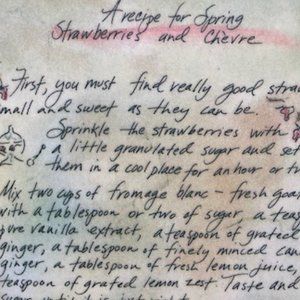 A recipe for Spring
Strawberries and Chèvre
First, you must find really good
small and sweet as they can be.
Sprinkle the strawberries with
a little granulated sugar and set
them in a cool place for an hour or
Mix two cups of fromage blanc – fresh
with a tablespoon or two of sugar, a
pure vanilla extract, a teaspoon of grated
ginger, a tablespoon of finely minced
ginger, a tablespoon of fresh lemon juice,
teaspoon of grated lemon zest. Taste and